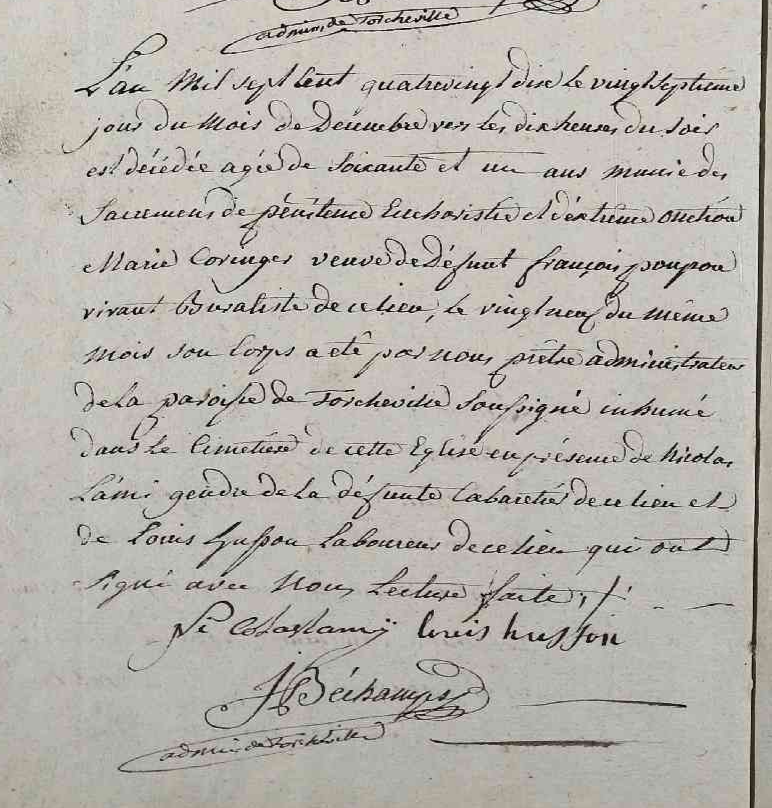 admin. de Torcheville
L'an Mil sept Cent quatrevingt dixe le vingtseptieme
jour du Mois de Décembre vers les dix heures du soir
est décédée agée de soixante et un ans munie des
Sacremens de pénitence Eucharistie et d'éxtrême onction
Marie Coringer veuve de Défunt françois poupon
vivant Buraliste de ce lieu, le vingtneuf du même
mois son Corps a été par nous prêtre administrateur
de la paroisse de Torcheville soussigné inhumé
dans le Cimetiére de cette Eglise en présence de Nicolas
Lami gendre de la défunte Cabaretier de ce lieu et
de Louis husson Laboureur de ce lieu qui ont
signé avec Nous Lecture faite ;/.
Ni Colas lamÿ louis husson
J Béchamps
admin. de Torcheville